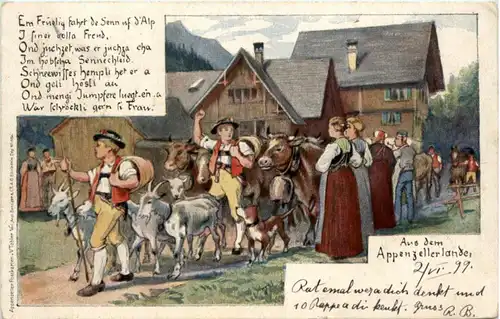 Em Früehlig fahrt de Senn uf d'Alp
I siner volla Freud,
Ond juchzet, was er juchza cha
Im hobscha Sennechleid.
Schneewisses Hempli het er a
Ond geli Hösli au
Ond mengi Jumpfere luegt en a
War schröckli gern si Frau.
Aus dem
Appenzellerlande.
2/VII. 99.
Rat emal wer a dich denkt und
10 Rappe a di henkt. Gruss
R. B.